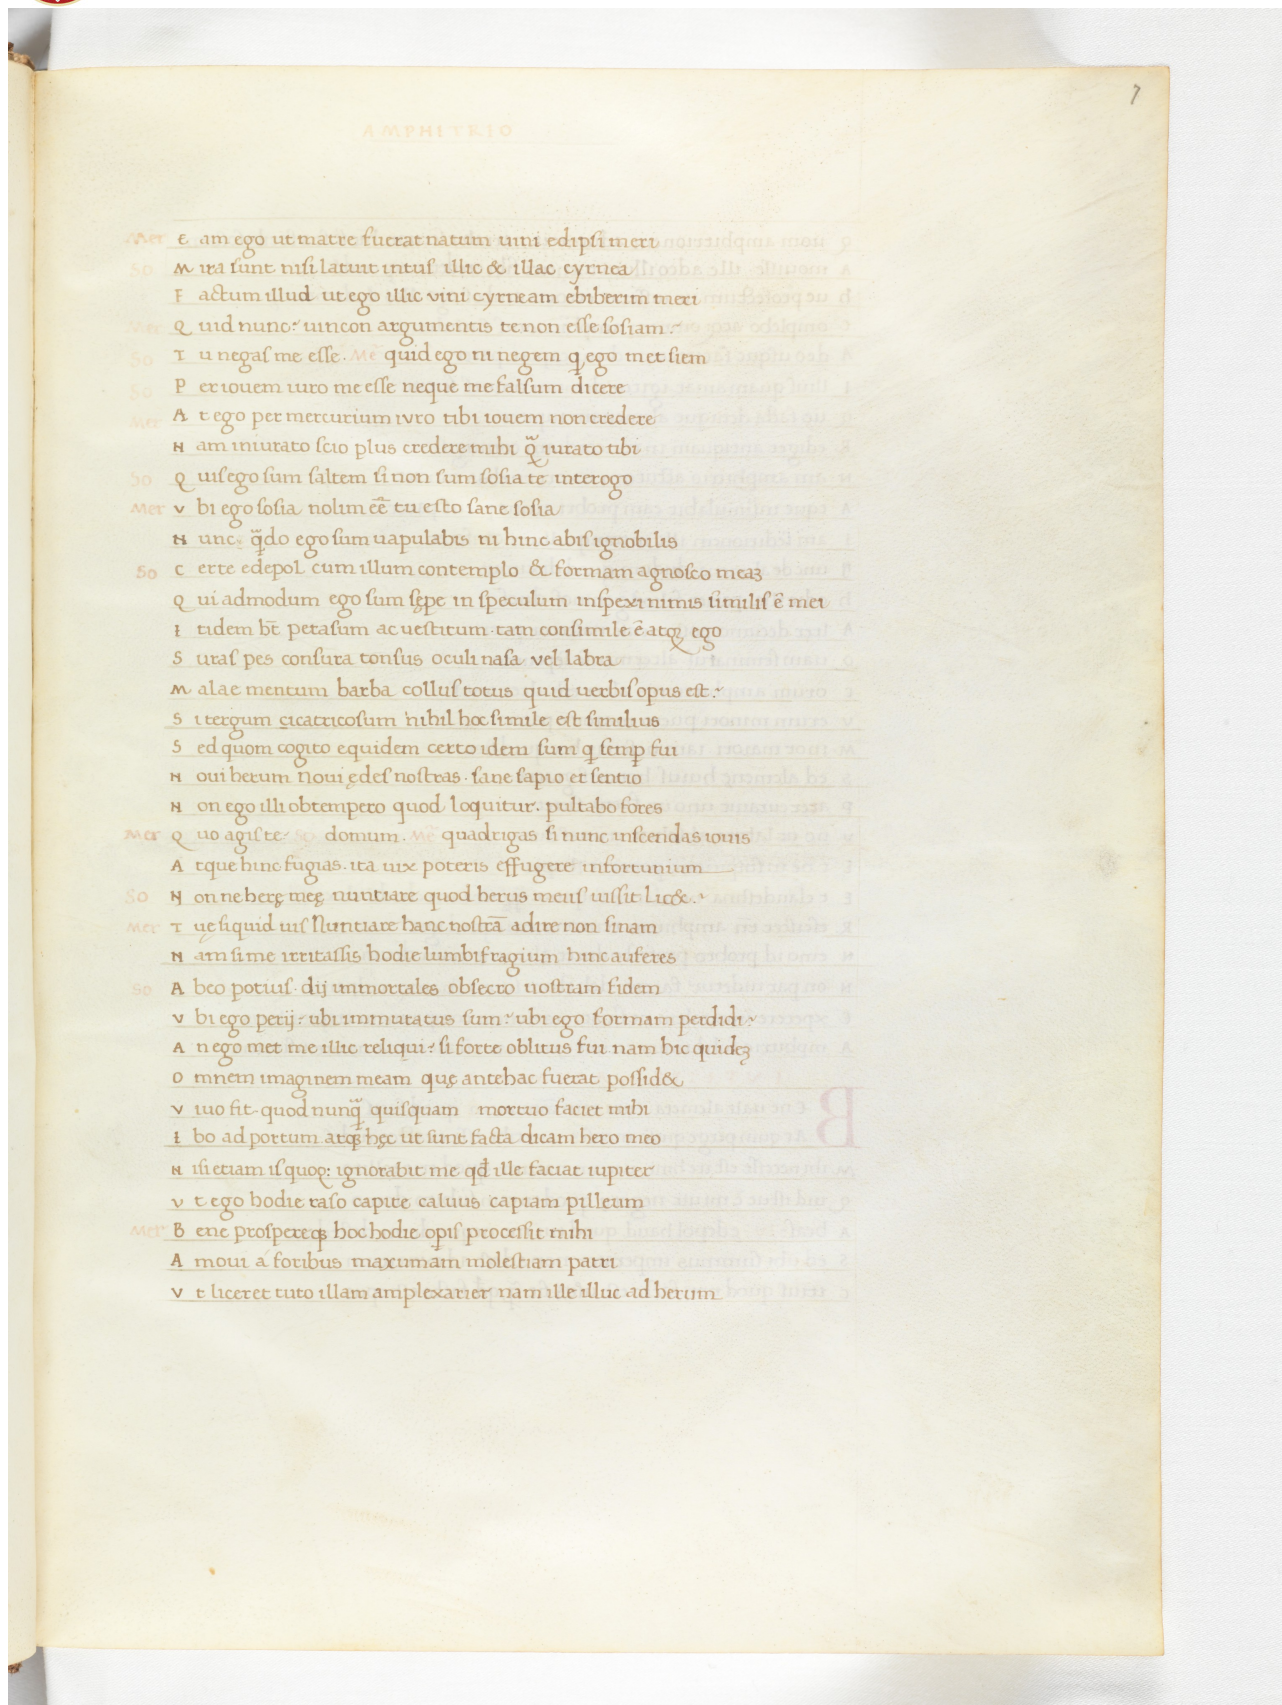 7
AMPHITRIO
Mer E am ego ut matre fuerat natum uini edipsi meri
So M ira sunt nisi latuit intus illic & illac cyrnea
F actum illud ut ego illic vini cyrneam ebiberim meri
Mer Q uid nunc? uincon argumentis te non esse sosiam?
So T u negas me esse. Me quid ego ni negem q ego met siem
So P er iovem iuro me esse neque me falsum dicere
Mer A t ego per mercurium ivro tibi iovem non credere
N am iniurato scio plus credere mihi q̃ iurato tibi
So Q uis ego sum saltem si non sum sosia te interogo
Mer V bi ego sosia nolim eē tu esto sane sosia
N unc. q̃do ego sum uapulabis ni hinc abis ignobilis
So C erte edepol cum illum contemplo & formam agnosco meaꝫ
Q ui admodum ego sum sępe in speculum inspexi nimis similis ē mei
I tidem bt̄ petasum ac uestitum. tam consimile ē atqꝫ ego
S uras pes consura tonsus oculi nasa vel labra
M alae mentum barba collus totus quid uerbis opus est?
S i tergum cicatricosum nihil hoc simile est similius
S ed quom cogito equidem certo idem sum q semꝑ fui
N oui herum noui ędes nostras. sane sapio et sentio
N on ego illi obtempero quod loquitur. pultabo fores
Mer Q uo agis te? So domum. Me quadrigas si nunc inscendas iouis
A tque hinc fugias. ita uix poteris effugere infortunium
So N on ne herę meę nuntiare quod herus meus iussit lic&?
Mer T uę siquid uis Nuntiare hanc nostrā adire non sinam
N am si me irritassis hodie lumbifragium hinc auferes
So A beo potius. dij immortales obsecro uostram fidem
V bi ego perij? ubi immutatus sum? ubi ego formam perdidi?
A n ego met me illic reliqui? si forte oblitus fui nam hic quideꝫ
O mnem imaginem meam quę antehac fuerat possid&
V iuo fit. quod nunq̃ quisquam mortuo faciet mihi
I bo ad portum atqꝫ hęc ut sunt facta dicam hero meo
N isi etiam is quoqꝫ ignorabit me qd̄ ille faciat iupiter
V t ego hodie raso capite caluus capiam pilleum
Mer B ene prospereqꝫ hoc hodie opis processit mihi
A moui a foribus maxumam molestiam patri
V t liceret tuto illam amplexarier nam ille illuc ad herum